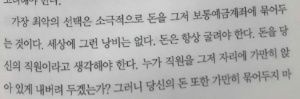 고려해야 한다.
가장 최악의 선택은 소극적으로 돈을 그저 보통예금계좌에 묶어두
는 것이다. 세상에 그런 낭비는 없다. 돈은 항상 굴려야 한다. 돈을 당
신의 직원이라고 생각해야 한다. 누가 직원을 그저 자리에 가만히 앉
아 있게 내버려 두겠는가? 그러니 당신의 돈 또한 가만히 묶어두지 마